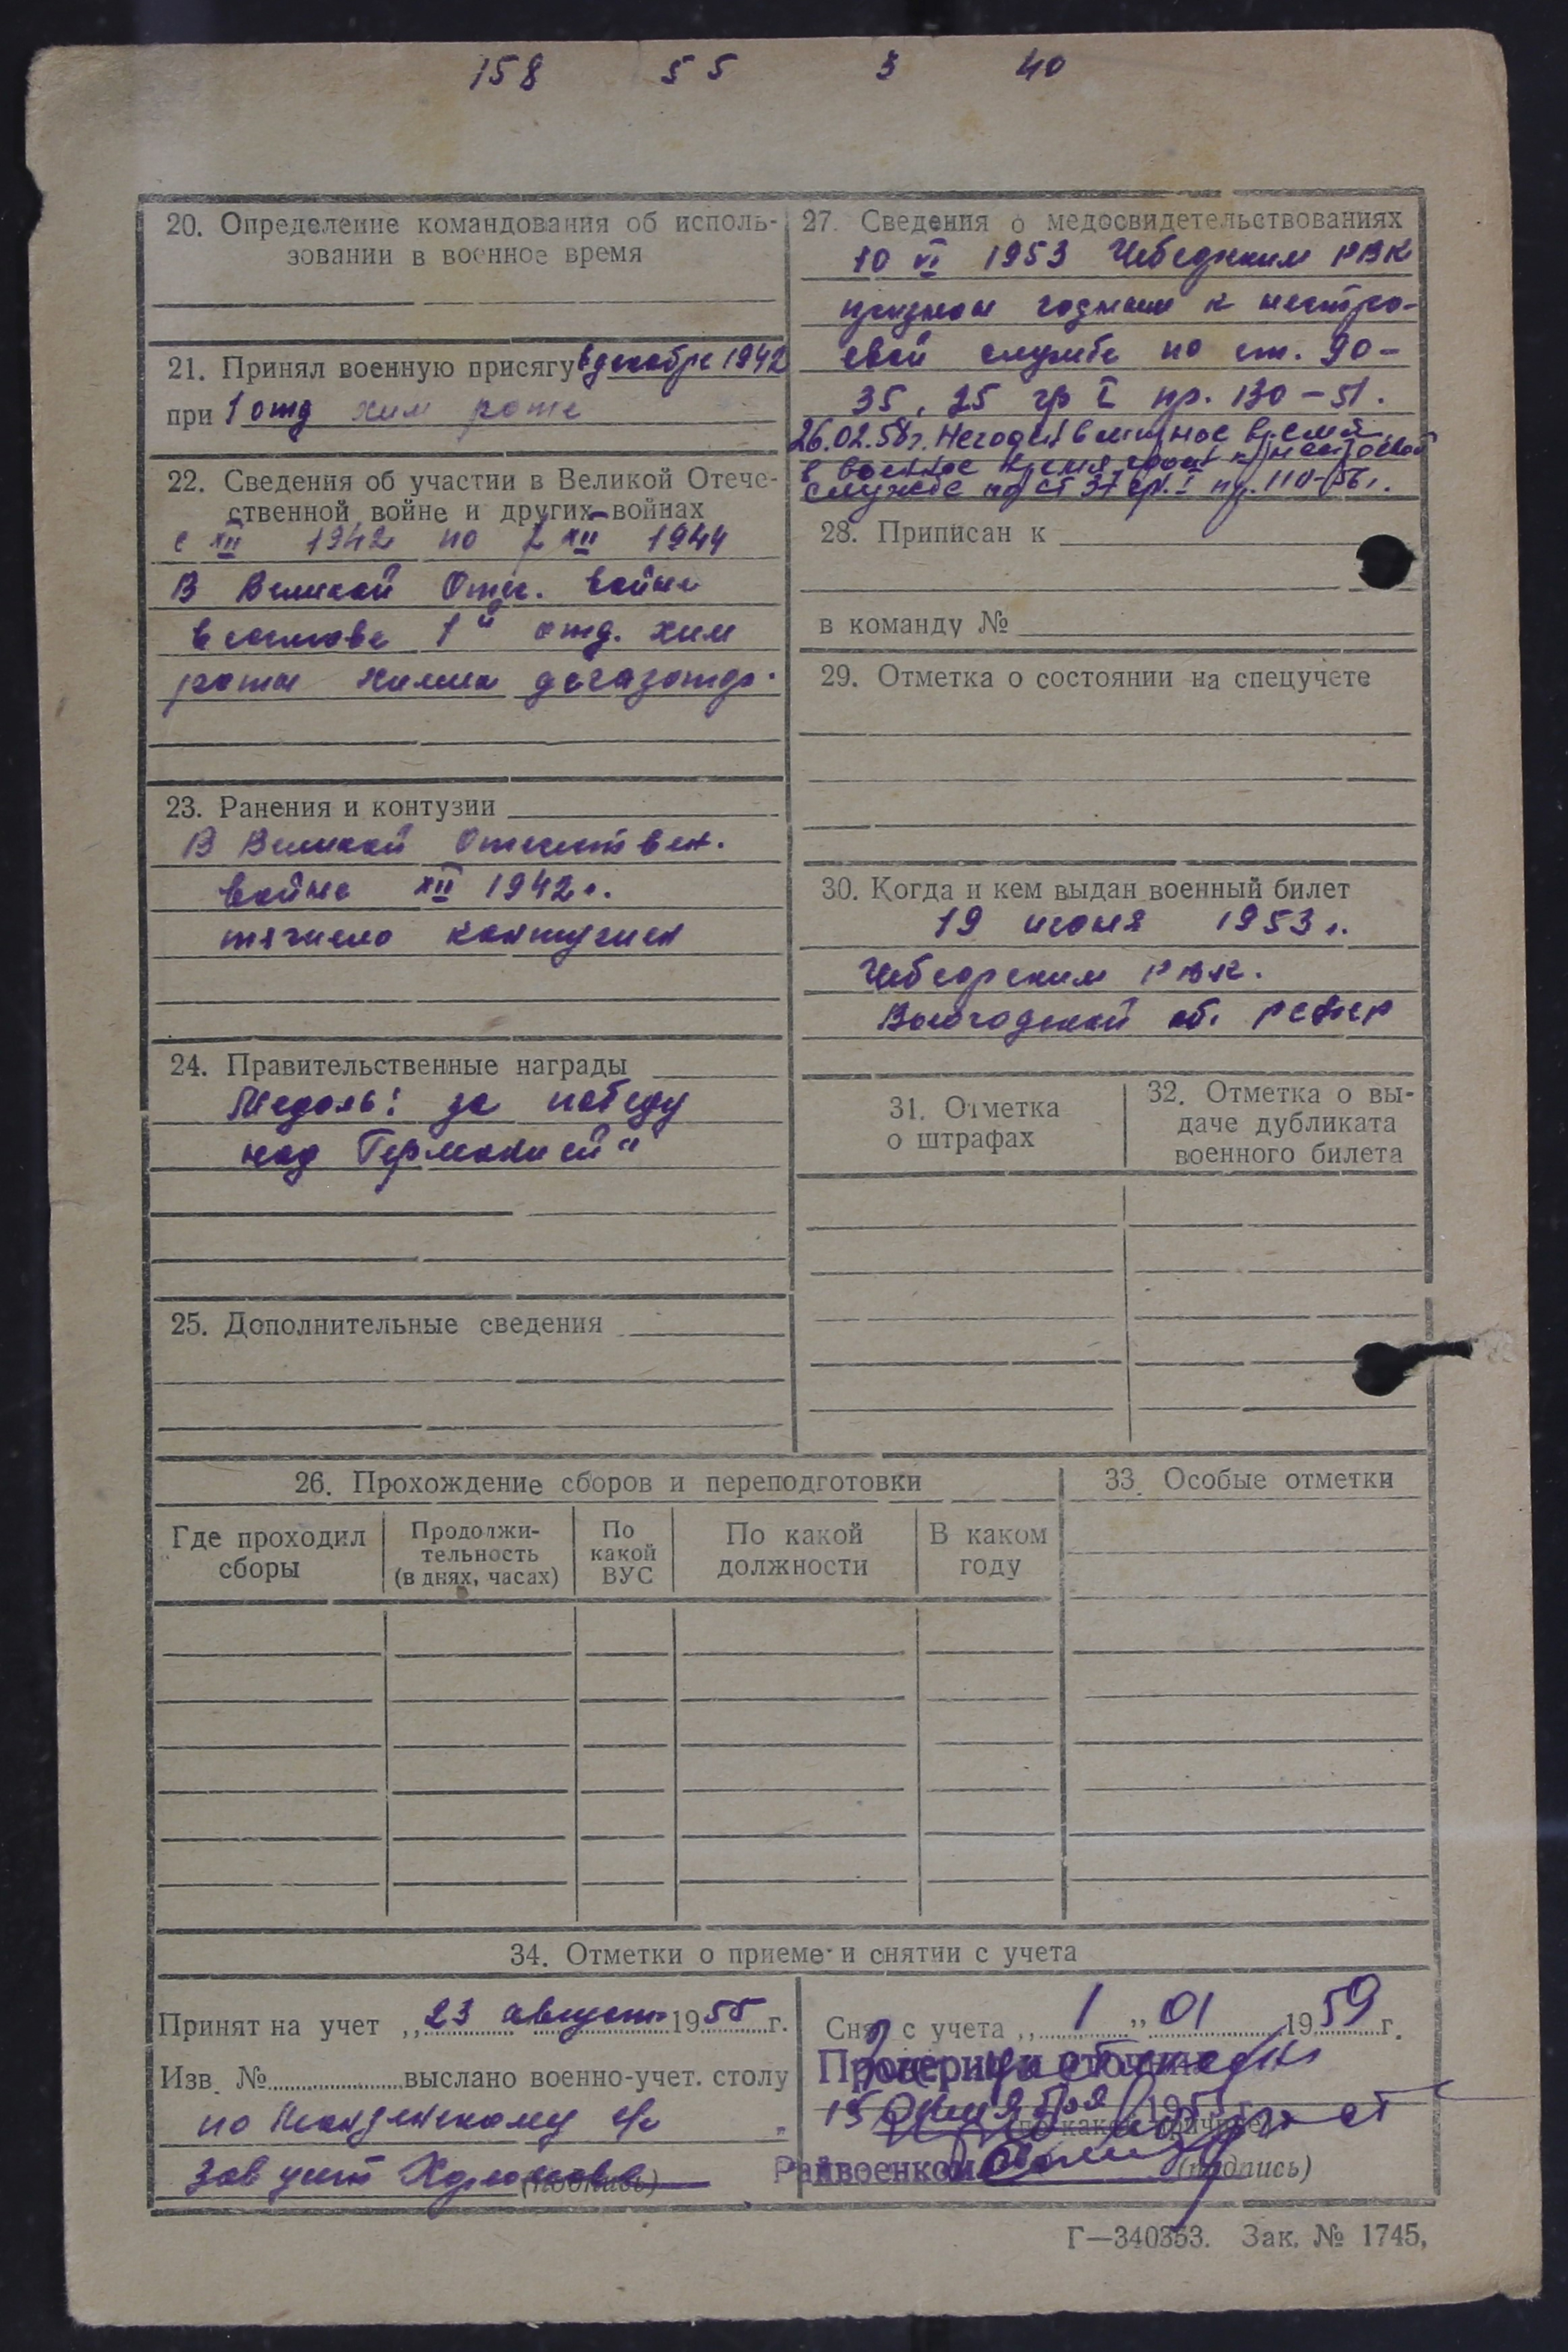 158 55 3 40
20. Определение командования об исполь-
зовании в военное время
21. Принял военную присягу в декабре 1942
при 1 отд хим роте
22. Сведения об участии в Великой Отече-
ственной войне и других войнах
с XII 1942 по XII 1944
В Великой Отеч. войне
в составе 1й отд. хим
роты химик дегазатор.
23. Ранения и контузии
В Великой Отечествен.
войне XII 1942 г.
тяжело контужен
24. Правительственные награды
Медаль: за победу
над Германией"
25. Дополнительные сведения
27. Сведения о медосвидетельствованиях
10 VI 1953 Чебсарским РВК
признан годным к нестро-
евой службе по ст. 90-
35, 25 гр I пр. 130-51.
26.02.58г. Негоден в мирное время,
в военное время годен к нестроевой
службе по ст 37 гр. I пр. 110-56г.
28. Приписан к
в команду №
29. Отметка о состоянии на спецучете
30. Когда и кем выдан военный билет
19 июня 1953 г.
Чебсарским РВК.
Вологодской об. РСФСР
31. Отметка
о штрафах
32. Отметка о вы-
даче дубликата
военного билета
26. Прохождение сборов и переподготовки
Где проходил
сборы
Продолжи-
тельность
(в днях, часах)
По
какой
ВУС
По какой
должности
В каком
году
33. Особые отметки
34. Отметки о приеме и снятии с учета
Принят на учет „23 август 1955 г.
Изв. № выслано военно-учет. столу
по с/с
Зав учет
(подпись)
Снят с учета „1" 01 1959 г.
15 1955
Райвоенком
(подпись)
Г—340353. Зак. № 1745,